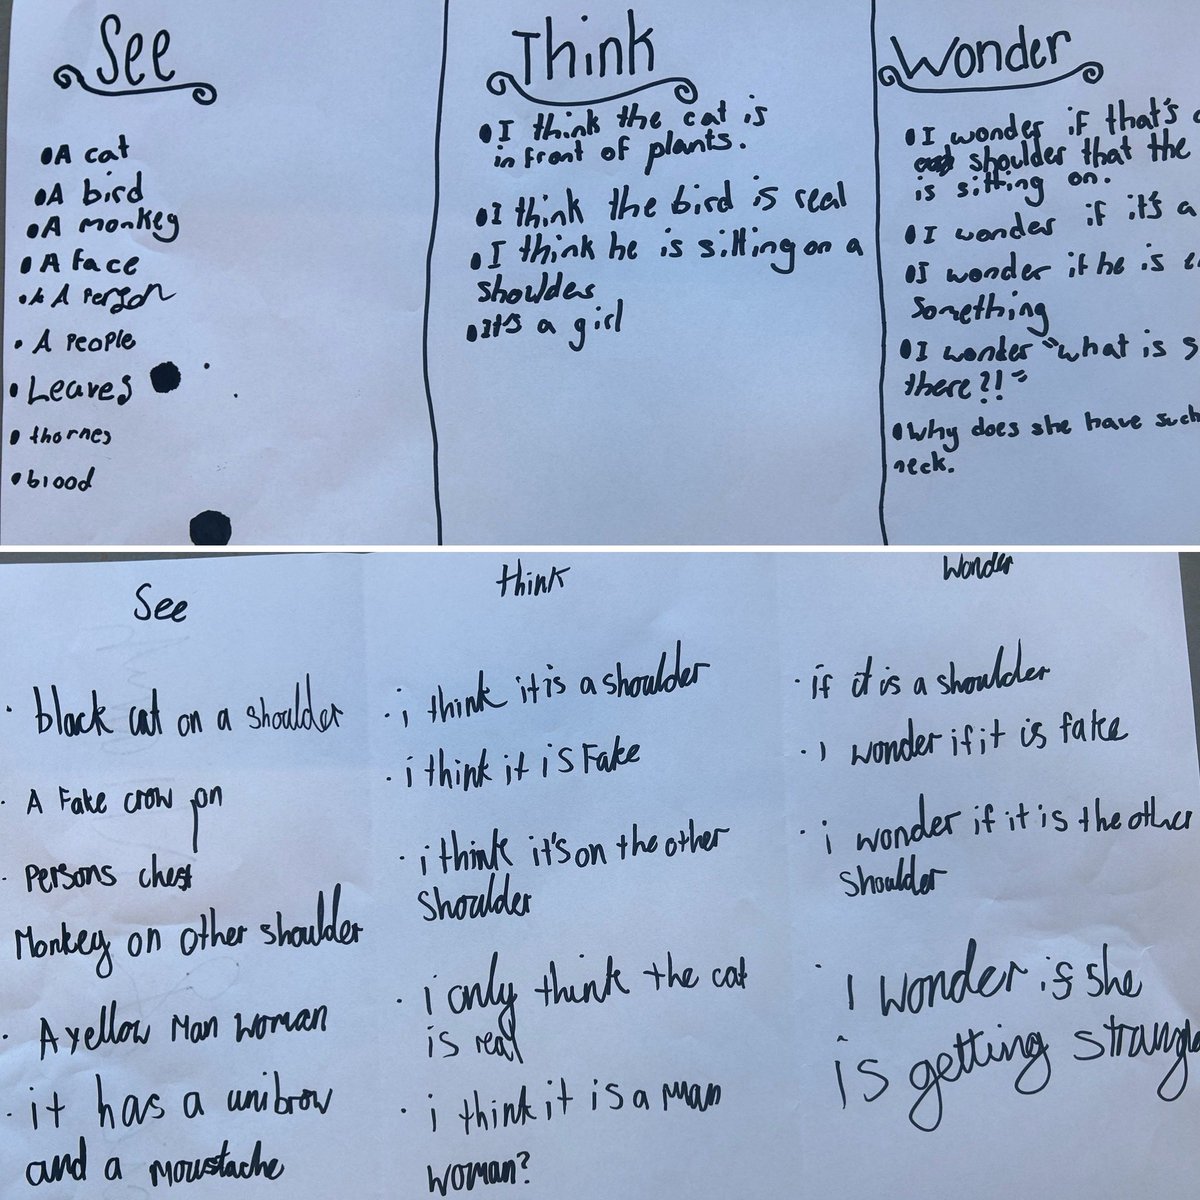 See
A cat
A bird
A monkey
A face
A Person
A People
Leaves
thornes
blood
Think
I think the cat is
in front of plants.
I think the bird is real
I think he is sitting on a
shoulder
It's a girl
Wonder
I wonder if that's
shoulder that the
is sitting on.
I wonder if it's a
I wonder if he is
Something
I wonder "what is
there?!"
Why does she have such
neck.
See
black cat on a shoulder
A Fake crow on
Persons chest
Monkey on other shoulder
A yellow Man woman
it has a unibrow
and a moustache
think
i think it is a shoulder
i think it is Fake
i think it's on the other
Shoulder
i only think the cat
is real
i think it is a man
woman?
Wonder
if it is a shoulder
I wonder if it is fake
i wonder if it is the other
Shoulder
I wonder if she
is getting